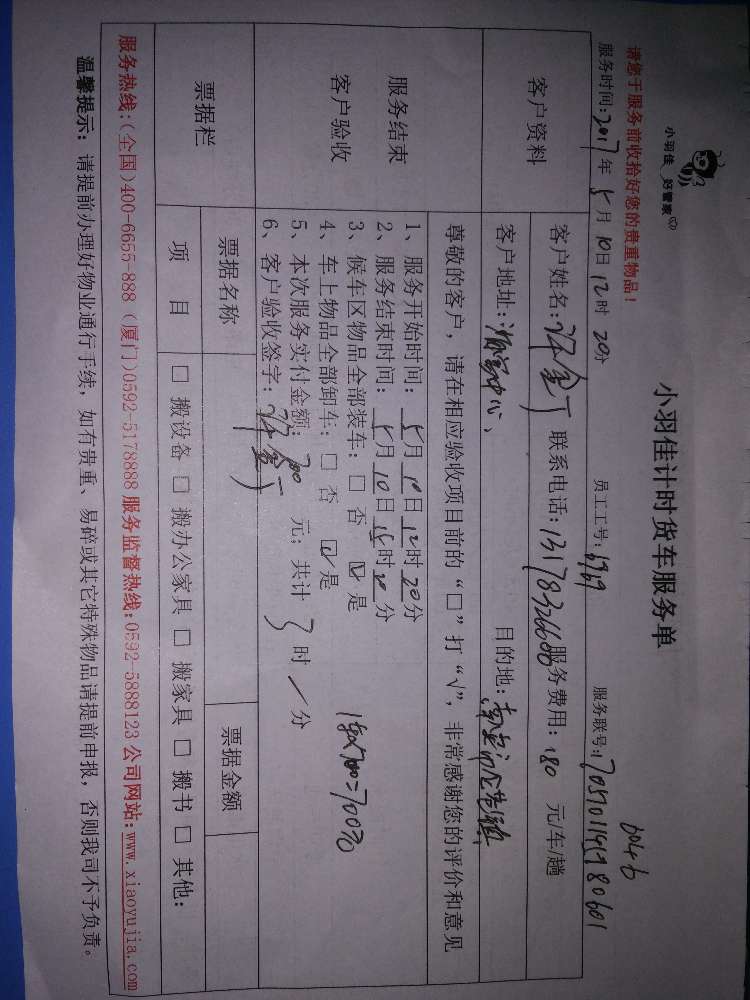 请您于服务前收拾好您的贵重物品!
小羽佳 好管家
小羽佳计时货车服务单
服务时间:2017年5月10日12时20分 员工工号:6969 服务联号:
客户资料
客户姓名: 联系电话: 服务费用:180 元/车/趟
客户地址: 目的地:
服务结束
客户验收
尊敬的客户，请在相应验收项目前的“□”打“√”，非常感谢您的评价和意见
1、服务开始时间:5月10日12时20分
2、服务结束时间:5月10日15时20分
3、候车区物品全部装车:□ 否 ☑ 是
4、车上物品全部卸车:□ 否 ☑ 是
5、本次服务实付金额:700 元;共计 3 时 / 分
6、客户验收签字:
票据栏
票据名称
票据金额
项 目
□ 搬设备 □ 搬办公家具 □ 搬家具 □ 搬书 □ 其他:
服务热线:(全国)400-6655-888 (厦门)0592-5178888 服务监督热线:0592-5888123 公司网站:www.xiaoyujia.com
温馨提示: 请提前办理好物业通行手续，如有贵重、易碎或其它特殊物品请提前申报，否则我司不予负责。